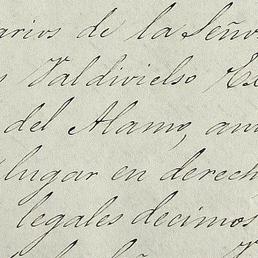 arios de la Seño
s Valdivielso Ex
del Alamo, an
lugar en derech
legales decimos